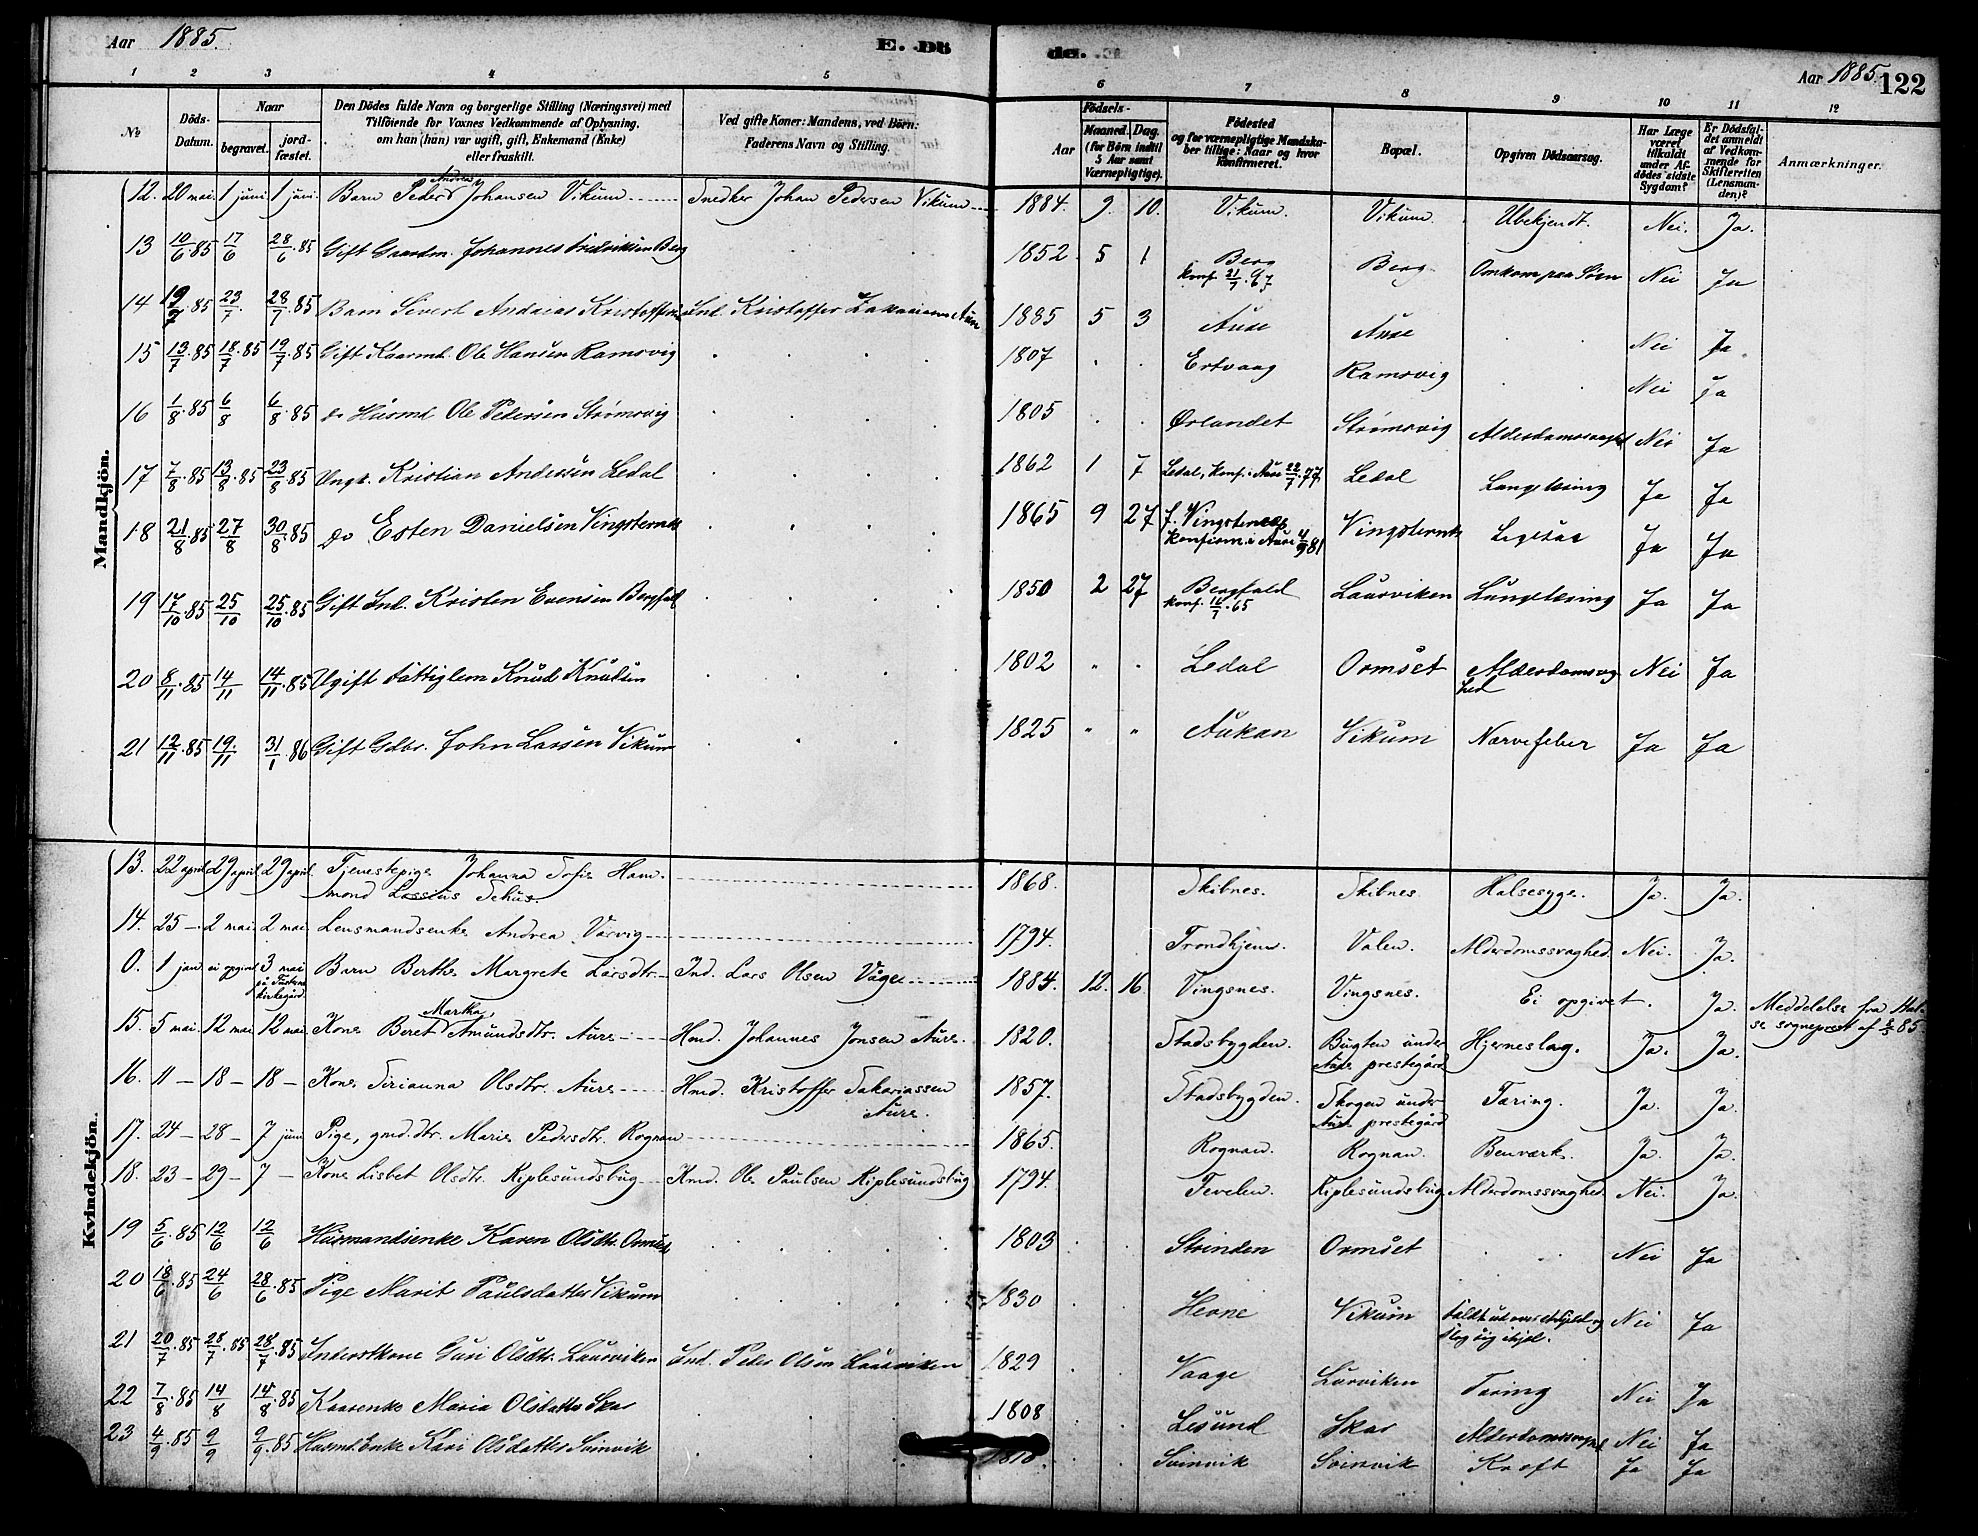 Aar 1885.
E. Dö
de.
Aar 1885. 122
1 2 3 4 5 6 7 8 9 10 11 12
No
Döds-Datum.
Naar
begravet.
jord-fæstet.
Den Dödes fulde Navn og borgerlige Stilling (Næringsvei) med
Tilföiende for Voxnes Vedkommende af Oplysning,
om han (hun) var ugift, gift, Enkemand (Enke)
eller fraskilt.
Ved gifte Koner: Mandens, ved Börn:
Faderens Navn og Stilling.
Födsels-
Aar
Maaned. Dag.
(for Börn indtil
5 Aar samt
Værnepligtige).
Födested
og for værnepligtige Mandska-
ber tillige: Naar og hvor
konfirmeret.
Bopæl.
Opgiven Dödsaarsag.
Har Læge
været
tilkaldt
under Af-
dödes sidste
Sygdom?
Er Dödsfal-
det anmeldt
af Vedkom-
mende for
Skifteretten
(Lensman-
den)?
Anmærkninger.
Mandkjön.
12. 20 mai. 1 juni. 1 juni. Barn Peder Andrea Johansen Vikum Snedker Johan Pedersen Vikum 1884. 9. 10. Vikum. Vikum. Ubekjendt. Nei. Ja.
13 10/6.85 17/6 28/6.85 Gift Gaardm. Johannes Fredriksen Berg 1852 5 1 Berg Berg Omkom paa Søen Nei Ja
konf. 21/7.67
14 19/7.85 23/7. 28/7.85 Barn Sivert Andreas Kristoffersen Ind. Kristoffer Zakariasen Aure 1885 5 3 Aure Aure Nei Ja
15 13/7.85 18/7.85 19/7.85 Gift Kaarmd. Ole Hansen Ramsvig 1807 Ertvaag Ramsvig Nei Ja
16 1/8.85 6/8 6/8.85 do Husmd Ole Pedersen Strømsvig 1805 Ørlandet Strømsvig Alderdomssvaghed Nei Ja
17 7/8.85 13/8.85 23/8.85 Ungk. Kristian Andersen Ledal 1862 1 7 Ledal, konf. i Aure 22/7.77 Ledal Lungetæring Ja Ja
18 21/8.85 27/8 30/8.85 do Esten Danielsen Vingsternes 1865 9 27 f. Vingsternes Vingsternes Ligesaa Ja Ja
konfirm. i Aure 4/9 81
19 17/10.85 25/10 25/10.85 Gift Ind. Kristen Evensen Bergfald 1850 2 27 Bergfald Laurviken Lungetæring Ja Ja
konf. 16/7.65
20 8/11.85 14/11 14/11.85 Ugift Fattiglem Knud Knudsen 1802 " " Ledal Ormset Alderdomsvag Nei Ja
hed
21 12/11.85 19./11 31/1 86 Gift Gdbr. John Larsen Vikum 1825 " " Aukan Vikum Nervefeber Ja Ja
Kvindekjön.
13. 22 april 29 april 29 april Tjenestepige Johanna Sofie Ham- 1868. Skibnes. Skibnes Halsesyge. Ja. Ja.
mond Lossius Sehus.
14. 25 - 2 mai 2 mai Lensmandsenke Andrea Varvig 1794. Trondhjem. Valen. Alderdomssvaghed. Nei. Ja.
0. 1 jan ei opgivet 3 mai Barn Berthe Margrete Larsdtr. Ind. Lars Olsen Våge 1884. 12. 16. Vingsnes. Vingsnes. Ei opgivet. Ja. Meddelelse fra Hal-
på Tustern kirkegård.
se sogneprest af 2/5 85.
15. 5 mai. 12 mai 12 mai Kone Beret Martha Amundsdtr. Aure Hmd. Johannes Jonsen Aure. 1820. Stadsbygden. Bugten under Hjerneslag. Ja. Ja.
Aure prestegård
16. 11 - 18 - 18 - Kone Sirianna Olsdtr. Aure Hmd. Kristoffer Sakariassen 1857. Stadsbygden. Skogen under Tæring. Ja. Ja.
Aure. Aure prestegård
17. 24 - 28 - 7 juni Pige, gmd.dtr. Marie Pedersdtr. Rognan 1865. Rognan. Rognan. Benværk. Ja. Ja.
18. 23 - 29 - 7 - Kone Lisbet Olsdtr. Kiplesundsbug Kmd. Ole Paulsen Kiplesundsbug 1794. Tevelen. Kiplesundsbug Alderdomssvaghed. Nei. Ja.
19 5/6.85 12/6 12/6 Husmandsenke Karen Olsdtr. Ormset 1803 Strinden Ormset Nei Ja
20 18/6.85 24/6 28/6.85 Pige Marit Paulsdatter Vikum 1830 Hevne Vikum Faldt ud over et og Nei Ja
slog sig ihjel.
21 20/7.85 28/7.85 28/7.85 Inderstkone Guri Olsdtr. Laurviken Ind. Peder Olsen Laurviken 1829 Vaage Lurviken Tæring Nei Ja
22 7/8.85 14/8 14/8.85 Kaarenke Maria Olsdatter Skar 1808 Lesund Skar Alderdomssvaghed Nei Ja
23 4/9.85 9/9 9/9.85 Husmd.Enke Kari Olsdatter Svinvik 1818. Svinvik Svinvik Kræft Ja Ja